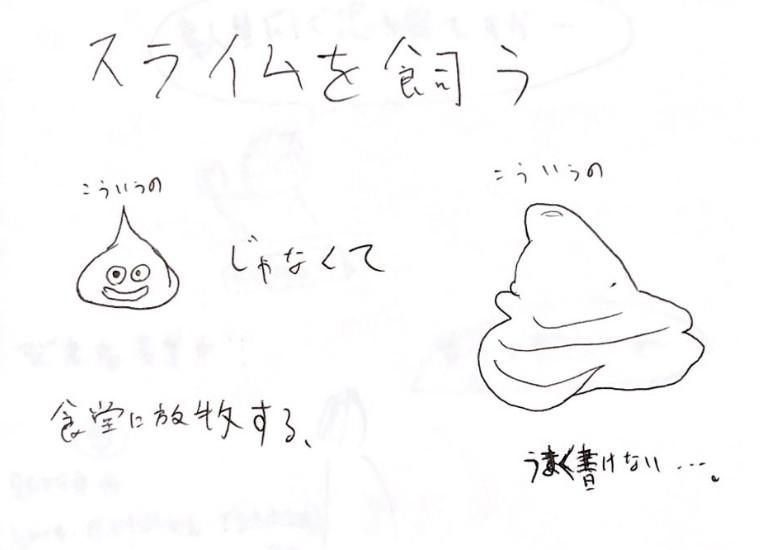 スライムを飼う
こういうの
じゃなくて
こういうの
食堂に放牧する、
うまく書けない…。